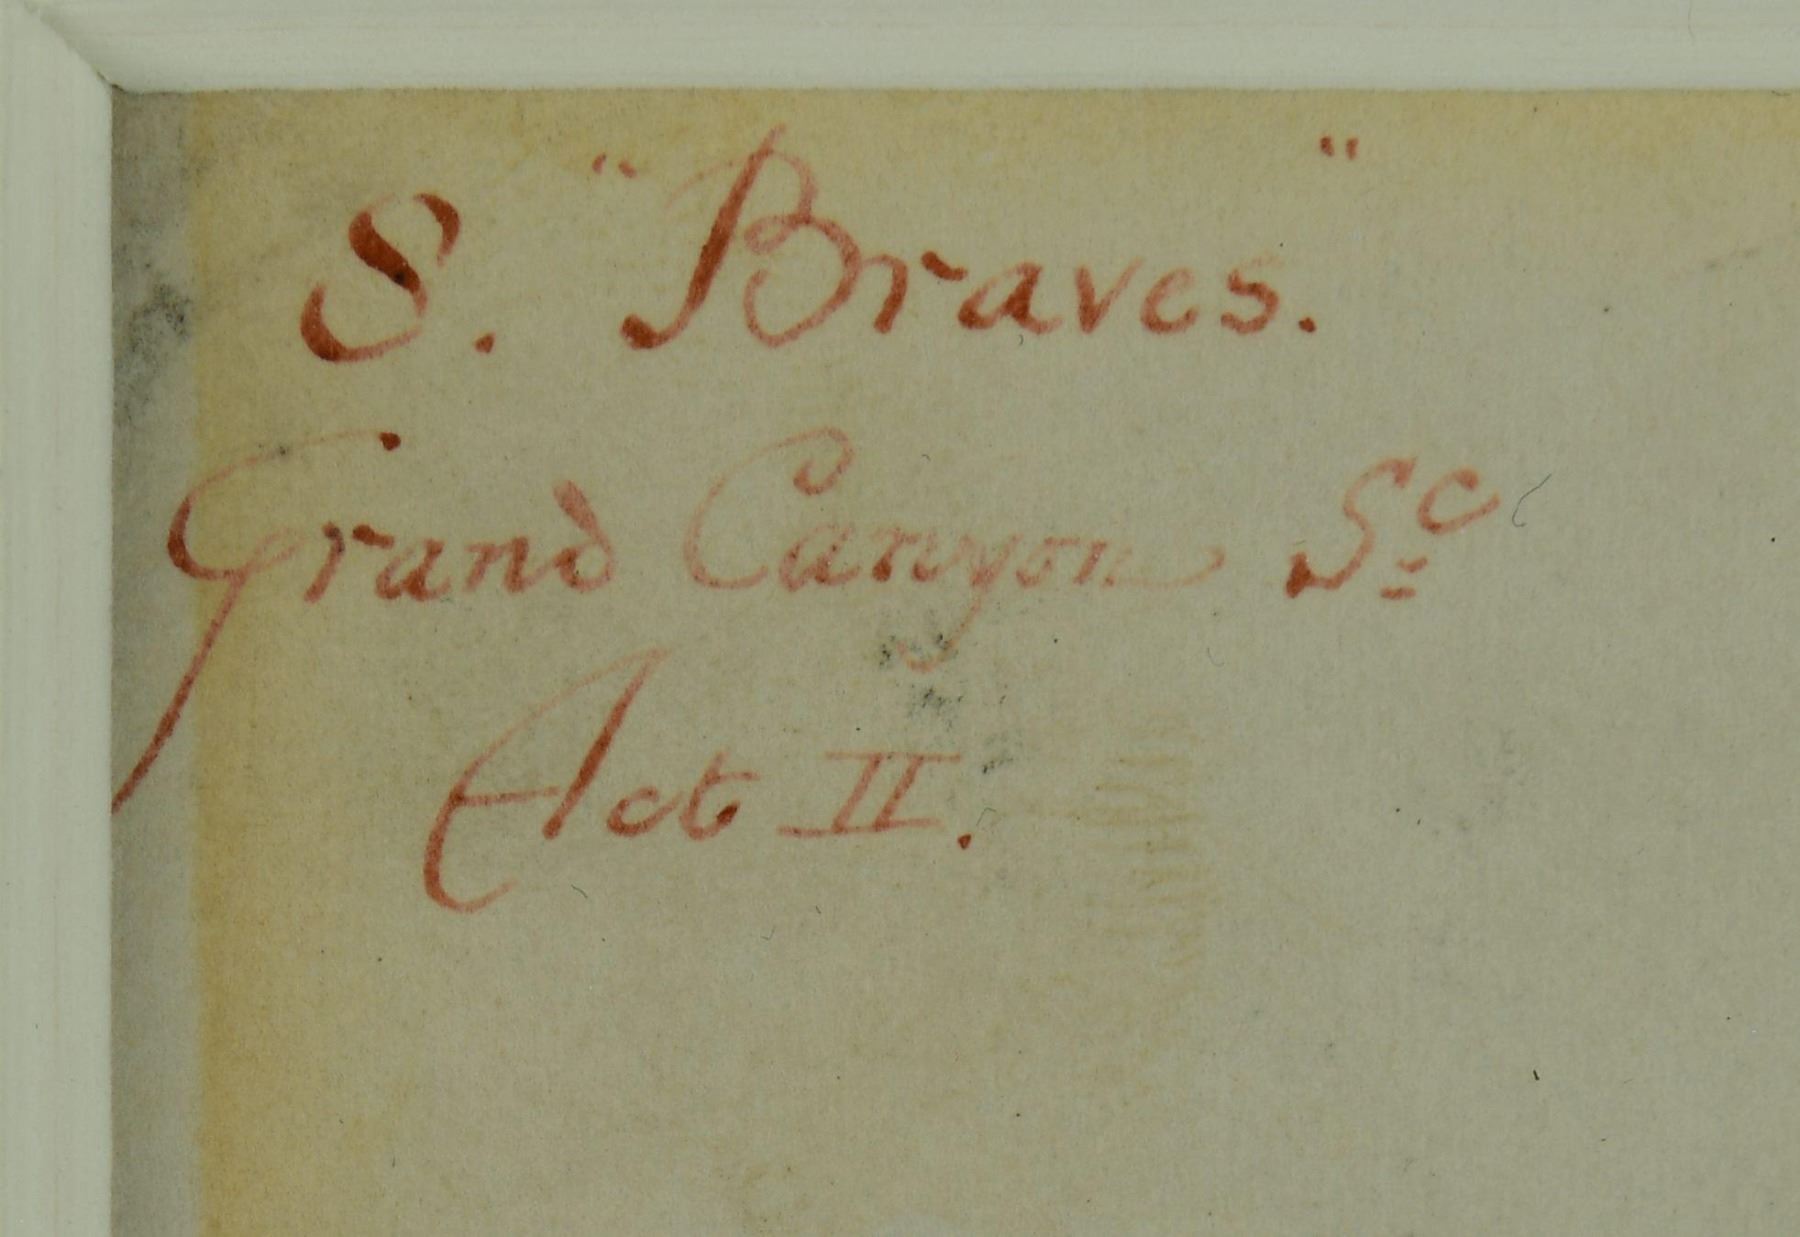 8. "Braves."
Grand Canyon Sc
Act II.